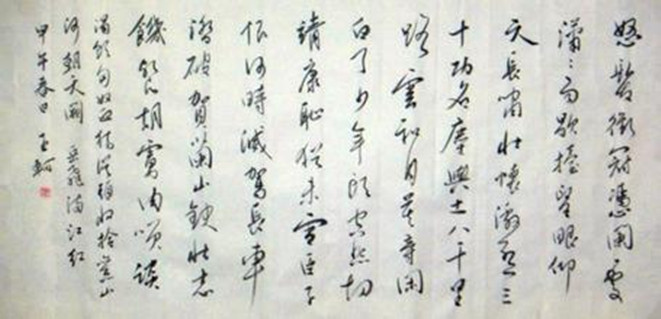 怒髮衝冠憑闌處
瀟〻雨歇擡望眼仰
天長嘯壯懷激烈三
十功名塵與土八千里
路雲和月莫等闲
白了少年頭空悲切
靖康恥猶未雪臣子
恨何時滅駕長車
踏破賀蘭山缺壯志
饑餐胡虜肉笑談
渴飲匈奴血待從頭收拾舊山
河朝天闕 岳飛滿江紅
甲午春日 王